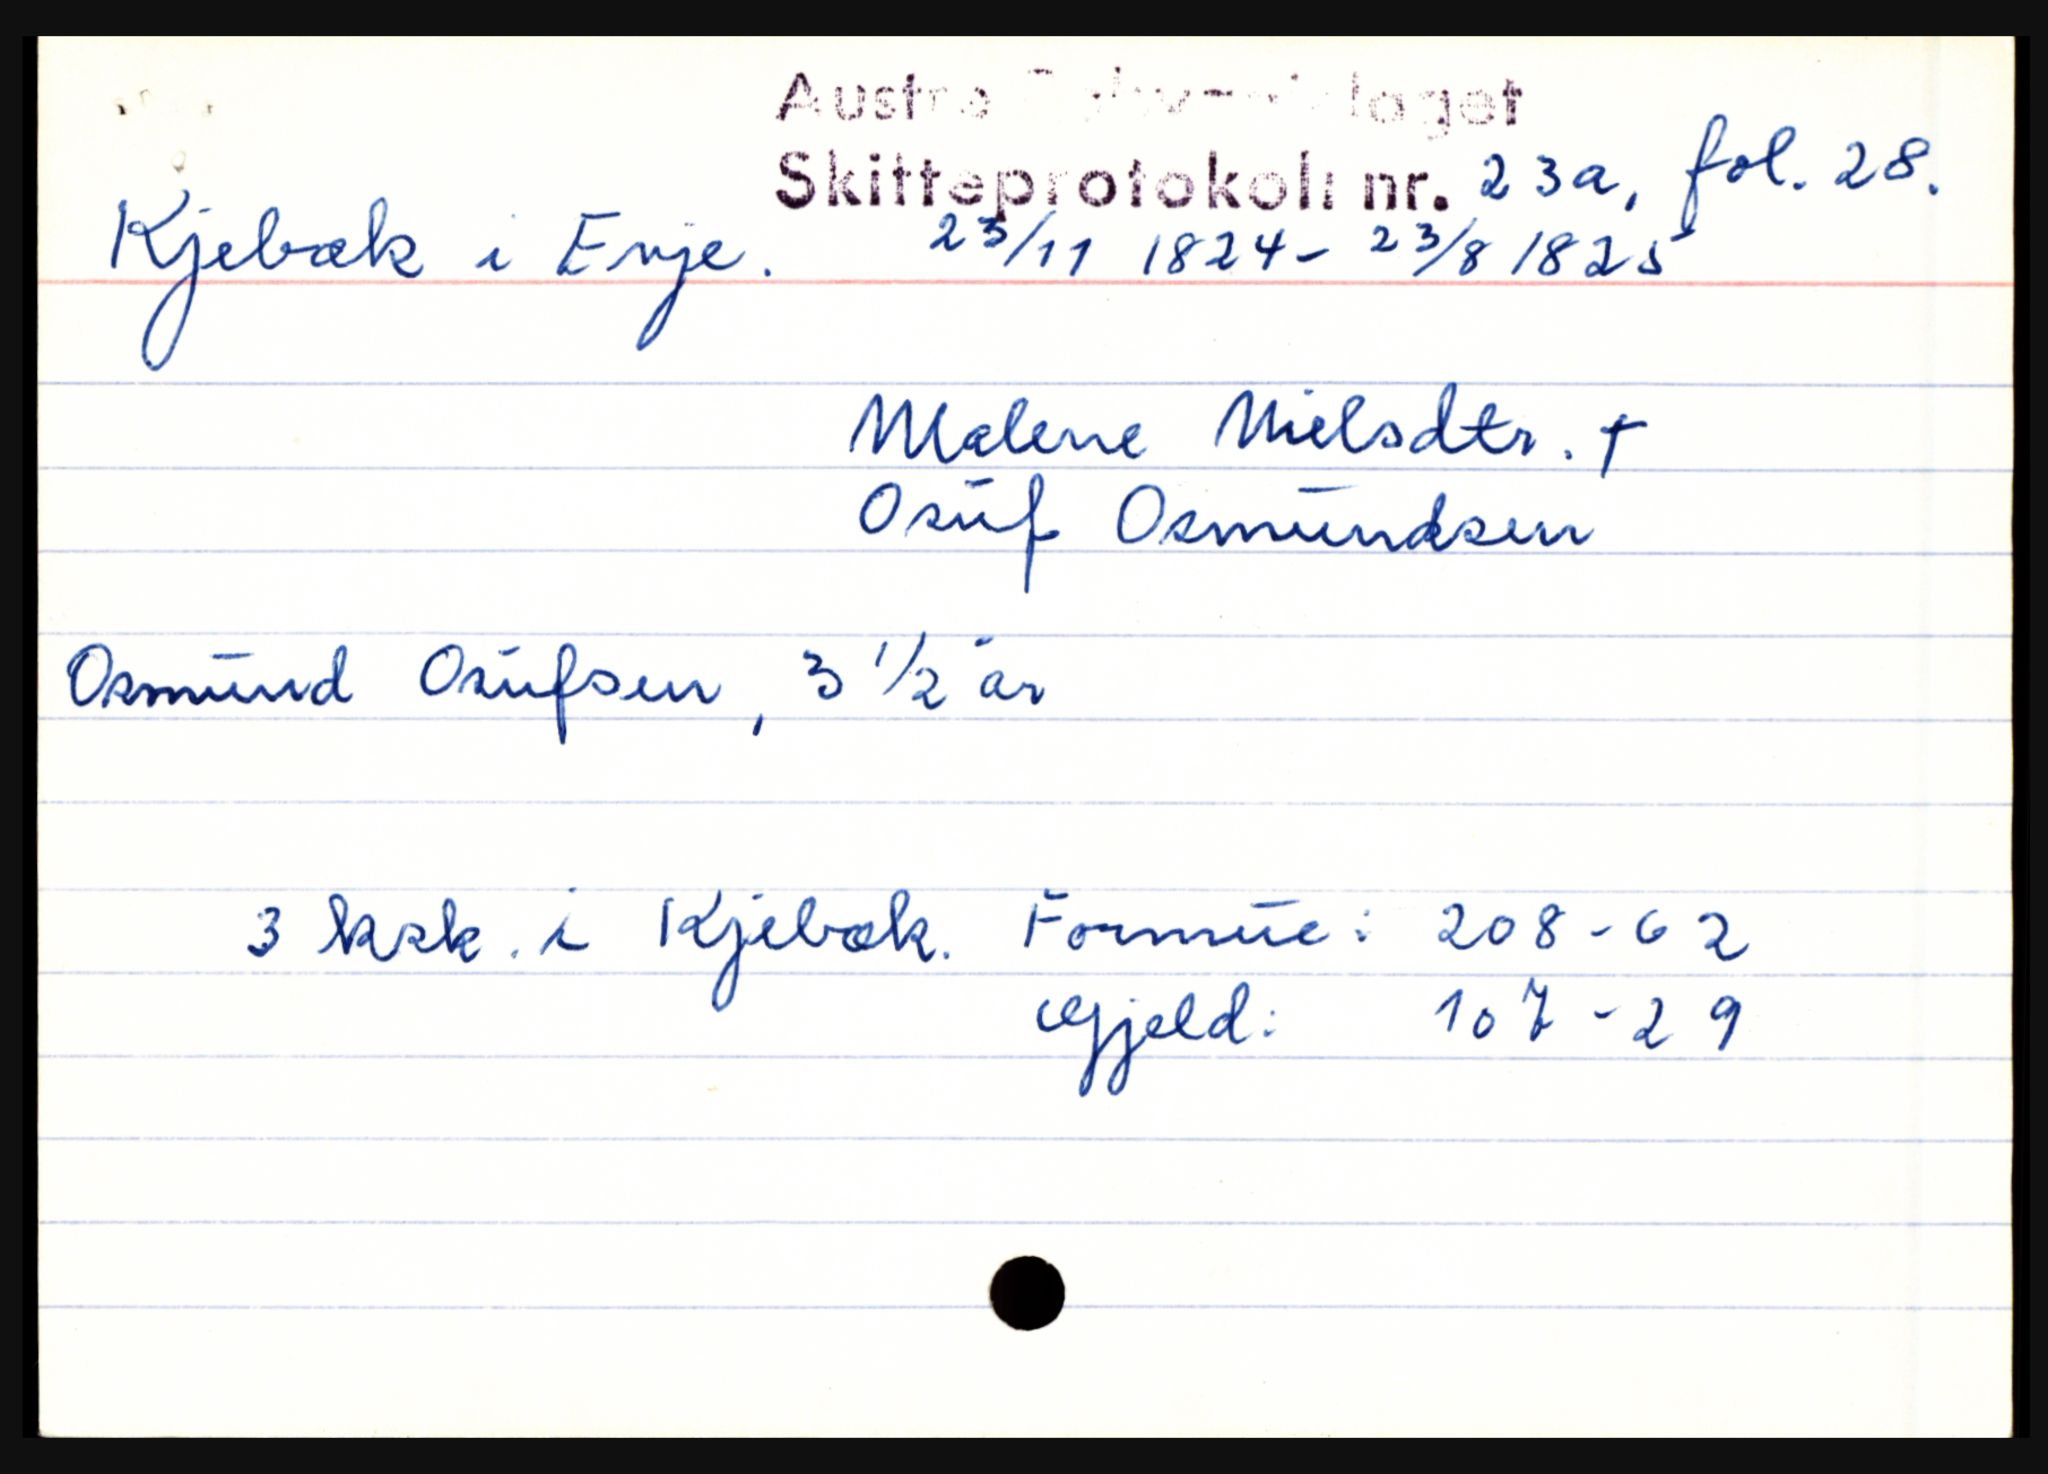 Austre
Skifteprotokoll nr. 23a, fol. 28.
Kjebæk i Evje. 23/11 1824 - 23/8 1825
Malene Nielsdtr. †
Osuf Osmundsen
Osmund Osufsen, 3 1/2 år
3 ksk. i Kjebæk. Formue: 208-62
Gjeld: 107-29